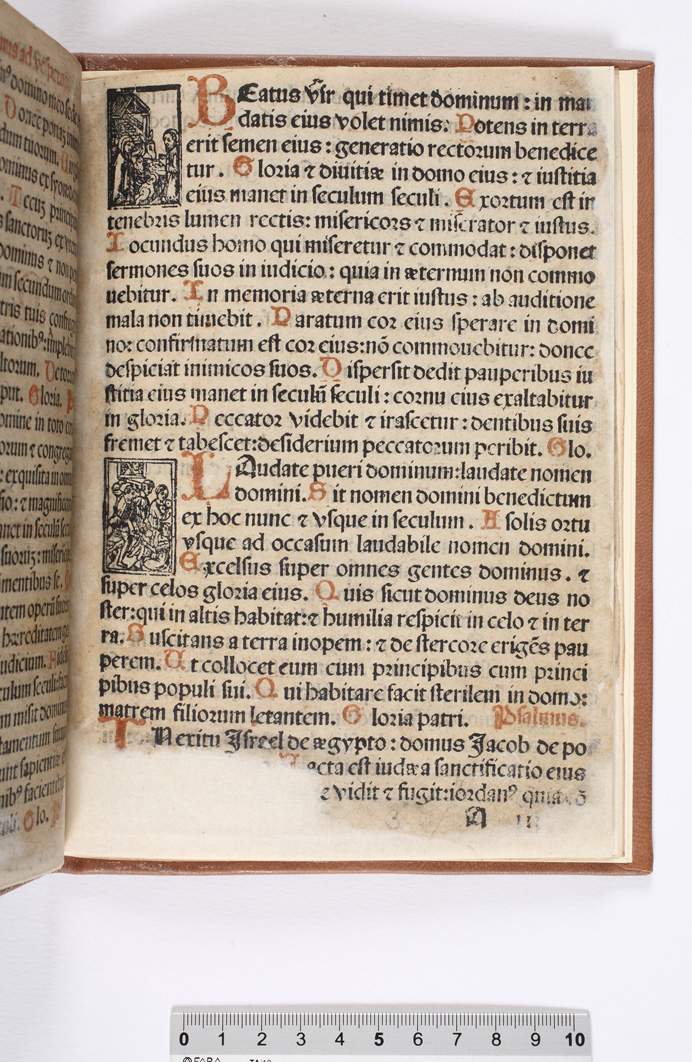 domino meo: sede
Donec ponam
dum tuorum.
Tecuz principiu
sanctoruz ex
dominus & non
tris tuis
Gloria.
omine in toto
& congrega
exquisita in
& magnificen
in seculū
suoruz:
mentibus se.
tem operū
hæreditatem
iudicium.
culum seculi:
misit domin
tamentum
sapientiæ
Glo.
BEatus vir qui timet dominum: in man
datis eius volet nimis. Potens in terra
erit semen eius: generatio rectorum benedice
tur. Gloria ⁊ diuitiæ in domo eius: ⁊ iustitia
eius manet in seculum seculi. Exortum est in
tenebris lumen rectis: misericors ⁊ miserator ⁊ iustus.
Iocundus homo qui miseretur ⁊ commodat: disponet
sermones suos in iudicio: quia in æternum non commo
uebitur. In memoria æterna erit iustus: ab auditione
mala non timebit. Paratum cor eius sperare in domi
no: confirmatum est cor eius: nō commouebitur: donec
despiciat inimicos suos. Dispersit dedit pauperibus iu
stitia eius manet in seculū seculi: cornu eius exaltabitur
in gloria. Peccator videbit ⁊ irascetur: dentibus suis
fremet ⁊ tabescet: desiderium peccatorum peribit. Glo.
LAudate pueri dominum: laudate nomen
domini. Sit nomen domini benedictum
ex hoc nunc ⁊ vsque in seculum. A solis ortu
vsque ad occasum laudabile nomen domini.
Excelsus super omnes gentes dominus. ⁊
super celos gloria eius. Quis sicut dominus deus no
ster: qui in altis habitat: ⁊ humilia respicit in celo ⁊ in ter
ra. Suscitans a terra inopem: ⁊ de stercore erigēs pau
perem. Ut collocet eum cum principibus cum princi
pibus populi sui. Qui habitare facit sterilem in domo:
matrem filiorum letantem. Gloria patri. Psalmus.
IN exitu Israel de ægypto: domus Jacob de po
acta est iudæa sanctificatio eius
vidit ⁊ fugit: iordanꝰ
A iii
0 1 2 3 4 5 6 7 8 9 10